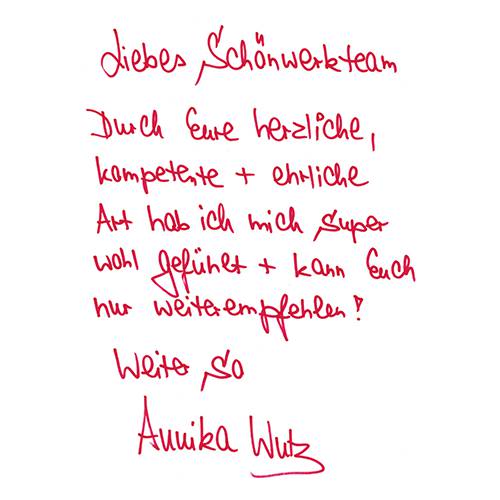 Liebes Schönwerkteam
Durch Eure herzliche,
kompetente + ehrliche
Art hab ich mich super
wohl gefühlt + kann Euch
nur weiterempfehlen!
Weiter so
Annika Wutz